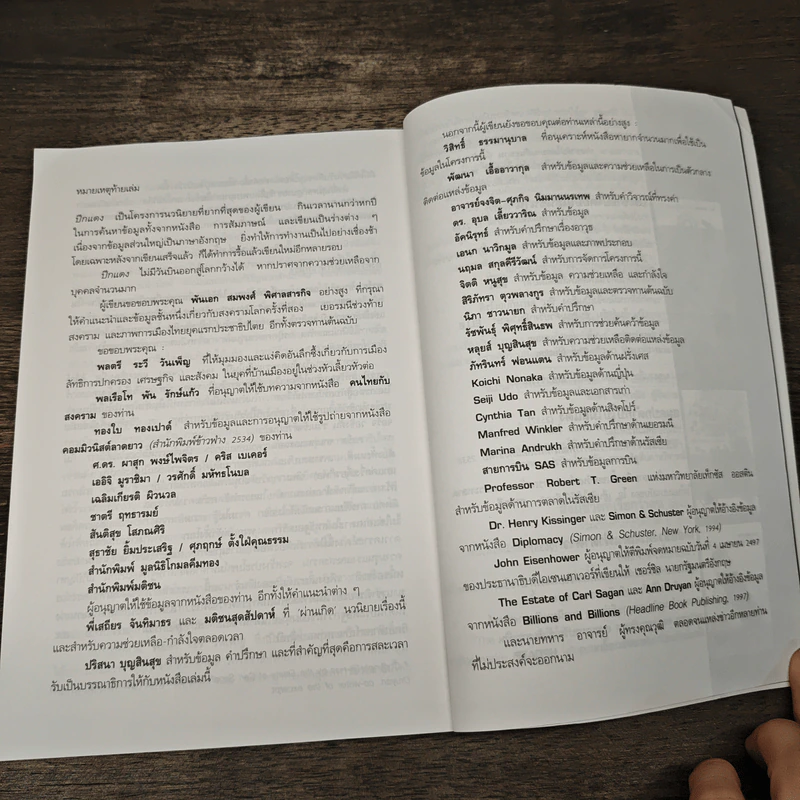 หมายเหตุท้ายเล่ม
ปีกแดง เป็นโครงการนวนิยายที่ยากที่สุดของผู้เขียน กินเวลานานกว่าหกปี
ในการค้นหาข้อมูลทั้งจากหนังสือ การสัมภาษณ์ และเขียนเป็นร่างต่าง ๆ
เนื่องจากข้อมูลส่วนใหญ่เป็นภาษาอังกฤษ ยิ่งทำให้การทำงานเป็นไปอย่างเชื่องช้า
โดยเฉพาะหลังจากเขียนเสร็จแล้ว ก็ได้ทำการรื้อแล้วเขียนใหม่อีกหลายรอบ
ปีกแดง ไม่มีวันบินออกสู่โลกกว้างได้ หากปราศจากความช่วยเหลือจาก
บุคคลจำนวนมาก
ผู้เขียนขอขอบพระคุณ พันเอก สมพงศ์ พิศาลสารกิจ อย่างสูง ที่กรุณา
ให้คำแนะนำและข้อมูลชั้นหนึ่งเกี่ยวกับสงครามโลกครั้งที่สอง เยอรมนีช่วงท้าย
สงคราม และภาพการเมืองไทยยุคแรกประชาธิปไตย อีกทั้งตรวจทานต้นฉบับ
ขอขอบพระคุณ :
พลตรี ระวี วันเพ็ญ ที่ให้มุมมองและแง่คิดอันลึกซึ้งเกี่ยวกับการเมือง
ลัทธิการปกครอง เศรษฐกิจ และสังคม ในยุคที่บ้านเมืองอยู่ในช่วงหัวเลี้ยวหัวต่อ
พลเรือโท พัน รักษ์แก้ว ที่อนุญาตให้ใช้บทความจากหนังสือ คนไทยกับ
สงคราม ของท่าน
ทองใบ ทองเปาด์ สำหรับข้อมูลและการอนุญาตให้ใช้รูปถ่ายจากหนังสือ
คอมมิวนิสต์ลาดยาว (สำนักพิมพ์ข้าวฟ่าง, 2534) ของท่าน
ศ.ดร. ผาสุก พงษ์ไพจิตร / คริส เบเคอร์
เออิจิ มูราชิมา / วรศักดิ์ มหัทธโนบล
เฉลิมเกียรติ ผิวนวล
ชาตรี ฤทธารมย์
สันติสุข โสภณสิริ
สุธาชัย ยิ้มประเสริฐ / ศุภฤกษ์ ตั้งใฝ่คุณธรรม
สำนักพิมพ์ มูลนิธิโกมลคีมทอง
สำนักพิมพ์มติชน
ผู้อนุญาตให้ใช้ข้อมูลจากหนังสือของท่าน อีกทั้งให้คำแนะนำต่าง ๆ
พี่เสถียร จันทิมาธร และ มติชนสุดสัปดาห์ ที่ 'ผ่านเกิด' นวนิยายเรื่องนี้
และสำหรับความช่วยเหลือ-กำลังใจตลอดเวลา
ปริสนา บุญสินสุข สำหรับข้อมูล คำปรึกษา และที่สำคัญที่สุดคือการสละเวลา
รับเป็นบรรณาธิการให้กับหนังสือเล่มนี้
นอกจากนี้ผู้เขียนยังขอขอบคุณต่อท่านเหล่านี้อย่างสูง :
วิสิทธิ์ ธรรมานุบาล ที่อนุเคราะห์หนังสือหายากจำนวนมากเพื่อใช้เป็น
ข้อมูลในโครงการนี้
พัฒนา เอื้ออาวากุล สำหรับข้อมูลและความช่วยเหลือในการเป็นตัวกลาง
ติดต่อแหล่งข้อมูล
อาจารย์จงจิต-ศุภกิจ นิมมานนรเทพ สำหรับคำวิจารณ์ที่ทรงค่า
ดร. อุบล เลี้ยววาริณ สำหรับข้อมูล
อัคนิรุทธ์ สำหรับคำปรึกษาเรื่องอาวุธ
เอนก นาวิกมูล สำหรับข้อมูลและภาพประกอบ
นฤมล สกุลคีรีวัฒน์ สำหรับการจัดการโครงการนี้
จิตติ หนูสุข สำหรับข้อมูล ความช่วยเหลือ และกำลังใจ
สิริภัทรา ตุวพลางกูร สำหรับข้อมูลและตรวจทานต้นฉบับ
นิภา ชาวนายก สำหรับคำปรึกษา
รัชพันธุ์ พิศุทธิ์สินธพ สำหรับการช่วยค้นคว้าข้อมูล
หลุยส์ บุญสินสุข สำหรับความช่วยเหลือติดต่อแหล่งข้อมูล
ภัทรินทร์ ฟอนแตน สำหรับข้อมูลด้านฝรั่งเศส
Koichi Nonaka สำหรับข้อมูลด้านญี่ปุ่น
Seiji Udo สำหรับข้อมูลและเอกสารเก่า
Cynthia Tan สำหรับข้อมูลด้านสิงคโปร์
Manfred Winkler สำหรับคำปรึกษาด้านเยอรมนี
Marina Andrukh สำหรับคำปรึกษาด้านรัสเซีย
สายการบิน SAS สำหรับข้อมูลการบิน
Professor Robert T. Green แห่งมหาวิทยาลัยเท็กซัล ออสติน
สำหรับข้อมูลด้านการตลาดในรัสเซีย
Dr. Henry Kissinger และ Simon & Schuster ผู้อนุญาตให้อ้างอิงข้อมูล
จากหนังสือ Diplomacy (Simon & Schuster, New York, 1994)
John Eisenhower ผู้อนุญาตให้ตีพิมพ์จดหมายฉบับวันที่ 4 เมษายน 2497
ของประธานาธิบดีไอเซนเฮาเวอร์ที่เขียนให้ เชอร์ชิล นายกรัฐมนตรีอังกฤษ
The Estate of Carl Sagan และ Ann Druyan ผู้อนุญาตให้อ้างอิงข้อมูล
จากหนังสือ Billions and Billions (Headline Book Publishing, 1997)
และนายทหาร อาจารย์ ผู้ทรงคุณวุฒิ ตลอดจนแหล่งข่าวอีกหลายท่าน
ที่ไม่ประสงค์จะออกนาม